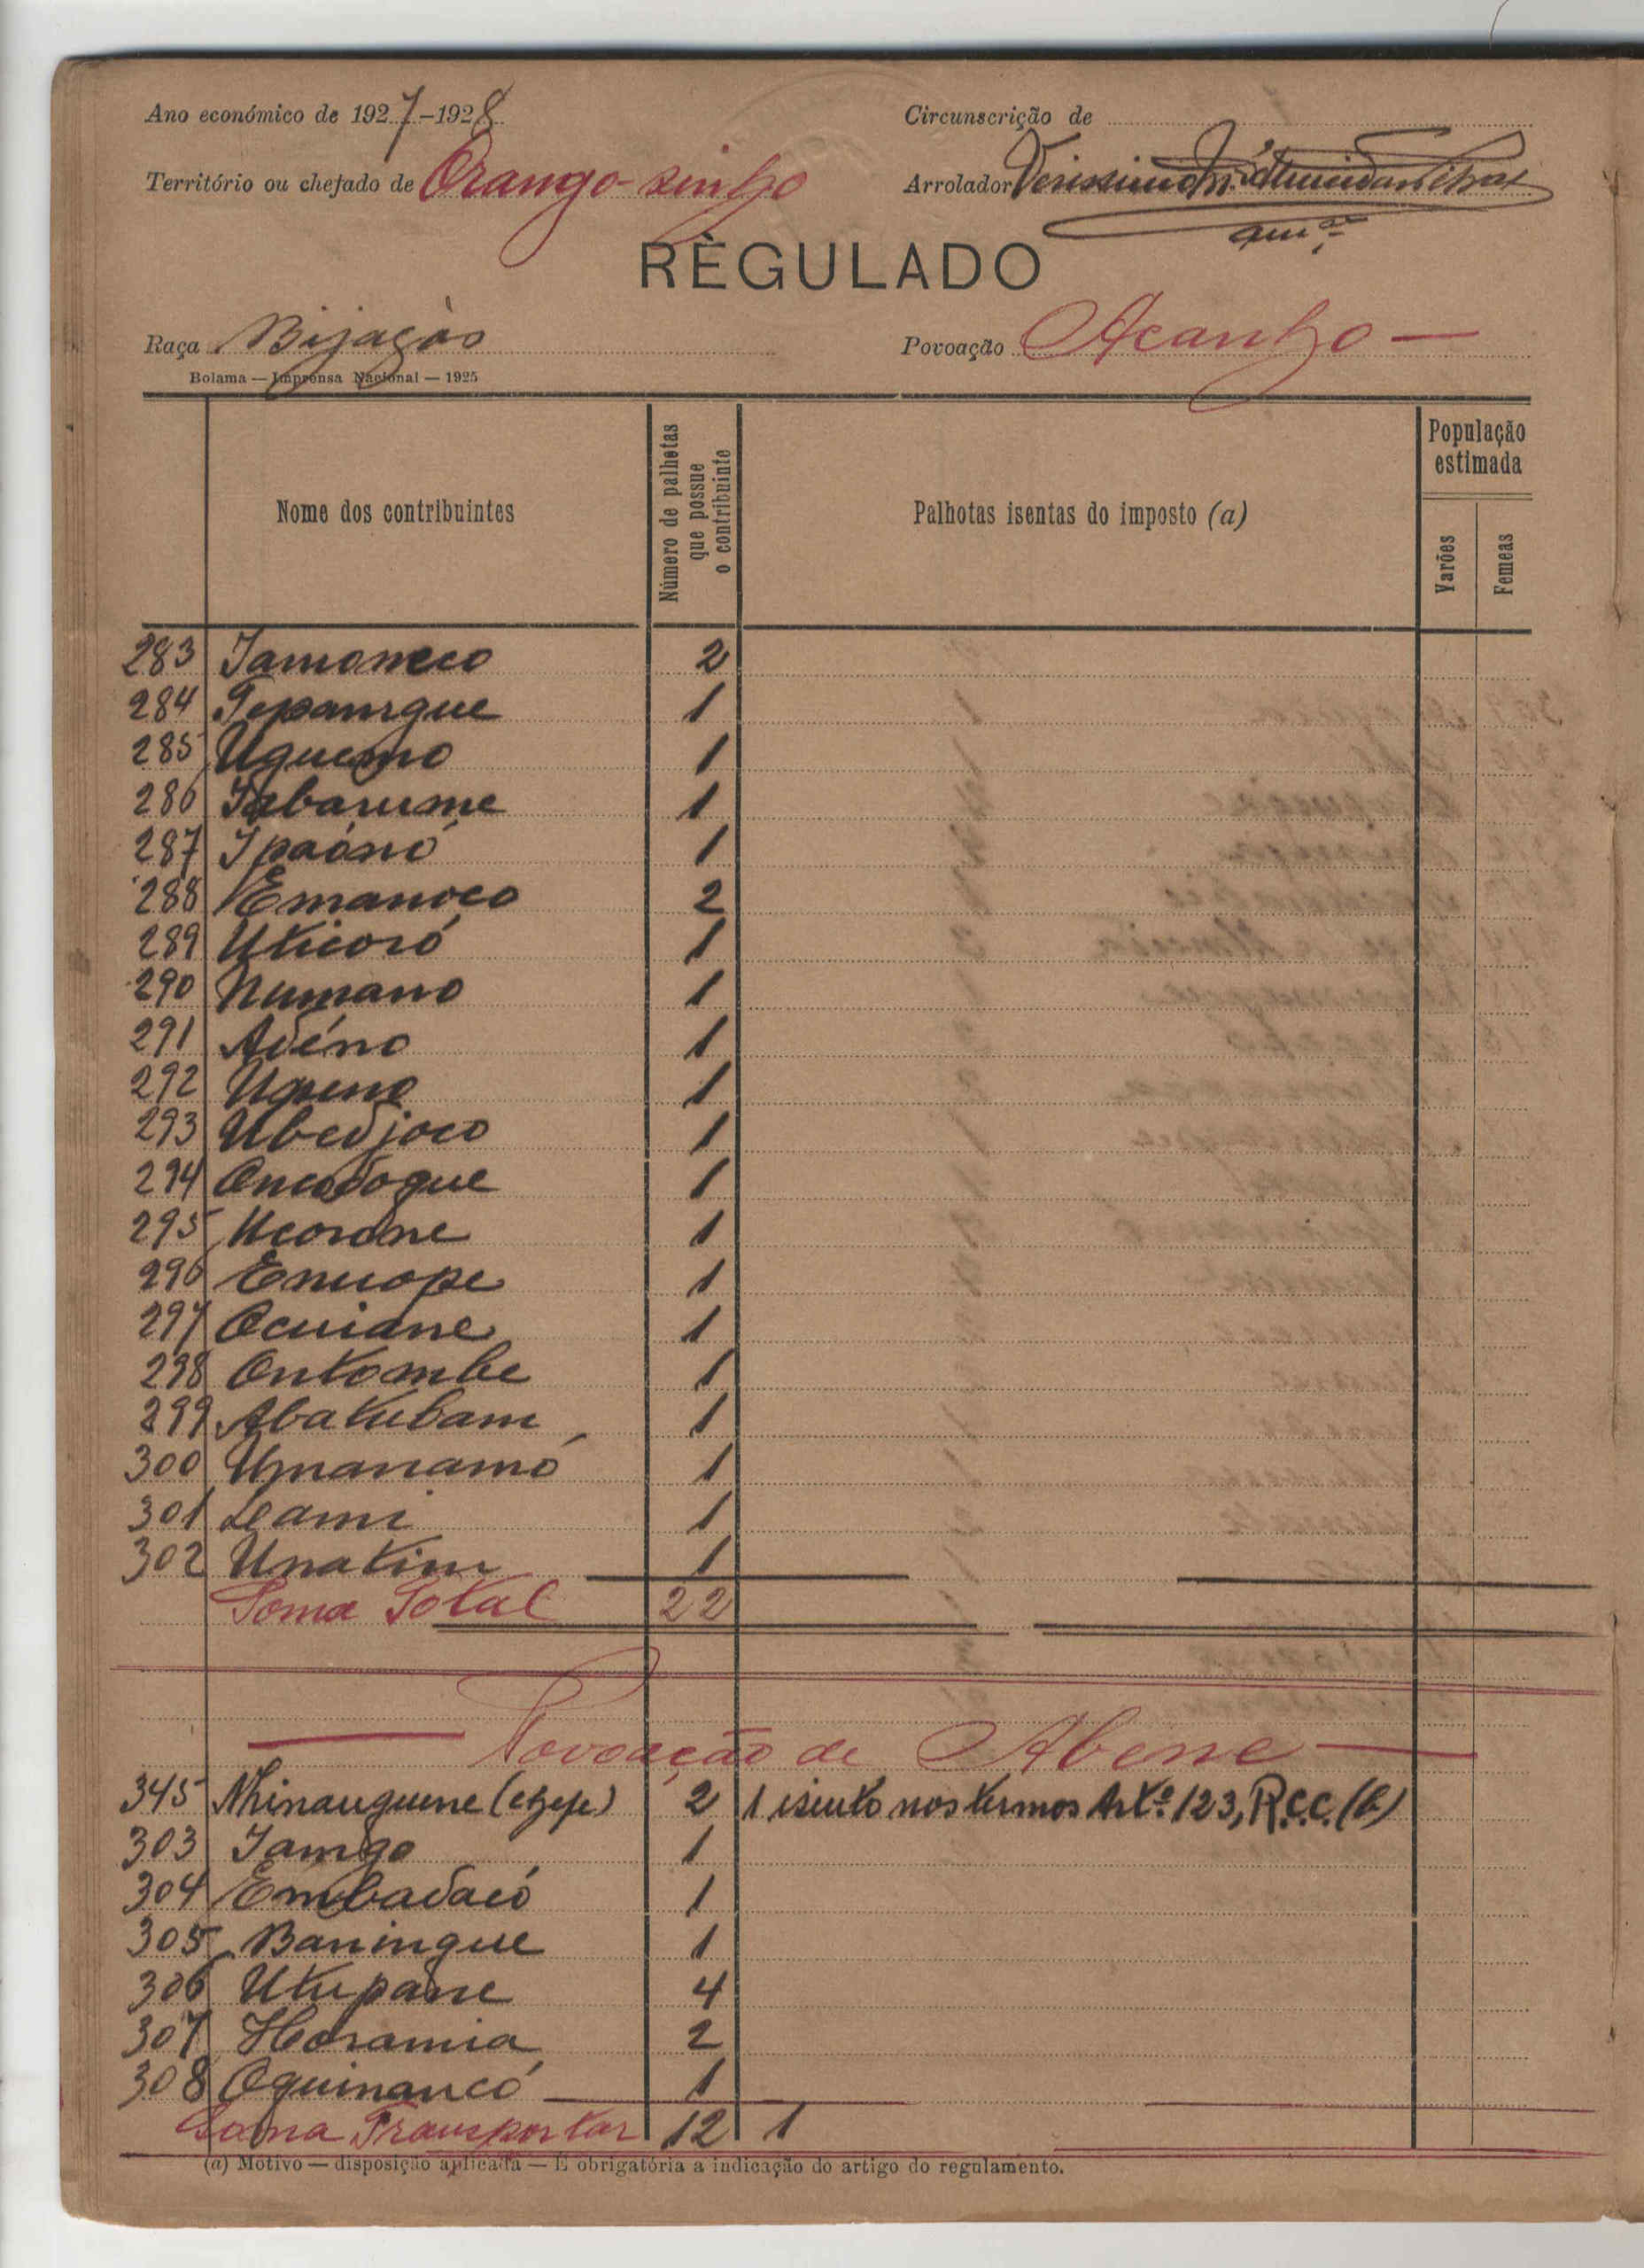 Ano económico de 1927-1928
Circunscrição de
Território ou chefado de Orango-sinho
Arrolador Verissimo
RÈGULADO
Raça Bijagòs
Povoação Acanho —
Bolama — Imprensa Nacional — 1925
Nome dos contribuintes
Número de palhotas que possue o contribuinte
Palhotas isentas do imposto (a)
População estimada
Varões
Femeas
283 Iamoneco 2
284 1
285 Uguemo 1
286 Iabarume 1
287 Ipaónó 1
288 Emanoco 2
289 Uticoró 1
290 Numano 1
291 Adéno 1
292 1
293 Ubedjoco 1
294 1
295 Ucorone 1
296 Enuope 1
297 Ocuiane 1
298 Ontombe 1
299 Abatubam 1
300 Umanamó 1
301 Leami 1
302 Unatim 1
Soma Total 22
Povoação de Abene —
345 Nhinauguene (chefe) 2 1 isento nos termos Artº. 123, R.C.C. (b)
303 Iamgo 1
304 Embadacó 1
305 Baningue 1
306 Utupane 4
307 Horamia 2
308 Oquinancó 1
Soma Transportar 12 1
(a) Motivo — disposição aplicada — É obrigatória a indicação do artigo do regulamento.